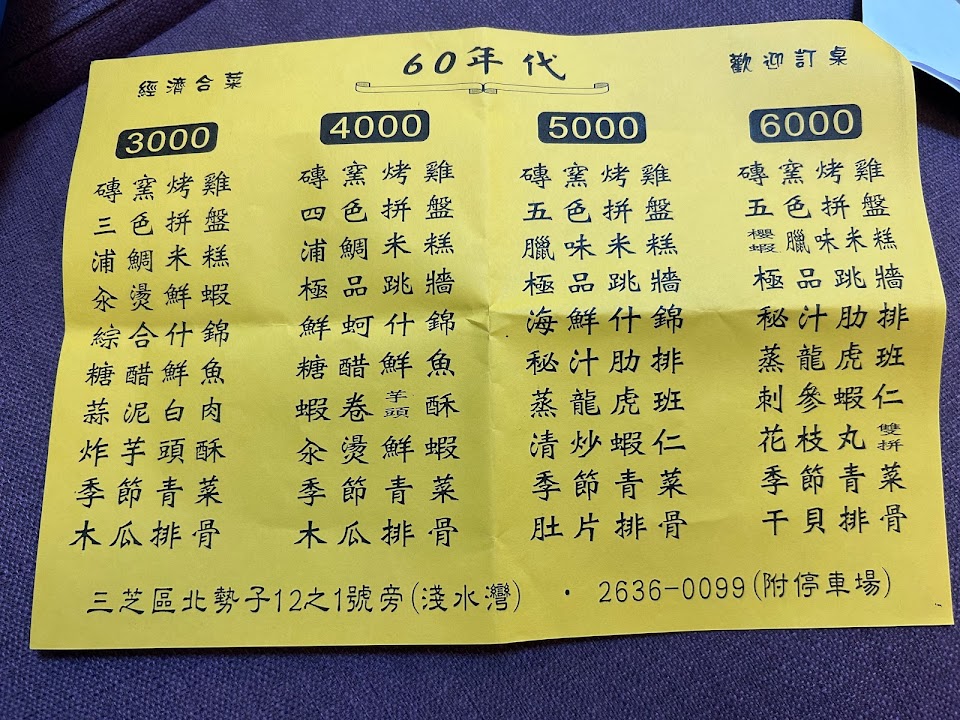 經濟合菜
60年代
歡迎訂桌
3000
磚窯烤雞
三色拼盤
浦鯛米糕
汆燙鮮蝦
綜合什錦
糖醋鮮魚
蒜泥白肉
炸芋頭酥
季節青菜
木瓜排骨
4000
磚窯烤雞
四色拼盤
浦鯛米糕
極品跳牆
鮮蚵什錦
糖醋鮮魚
蝦卷芋頭酥
汆燙鮮蝦
季節青菜
木瓜排骨
5000
磚窯烤雞
五色拼盤
臘味米糕
極品跳牆
海鮮什錦
秘汁肋排
蒸龍虎班
清炒蝦仁
季節青菜
肚片排骨
6000
磚窯烤雞
五色拼盤
櫻蝦臘味米糕
極品跳牆
秘汁肋排
蒸龍虎班
刺參蝦仁
花枝丸雙拼
季節青菜
干貝排骨
三芝區北勢子12之1號旁(淺水灣)・2636-0099(附停車場)